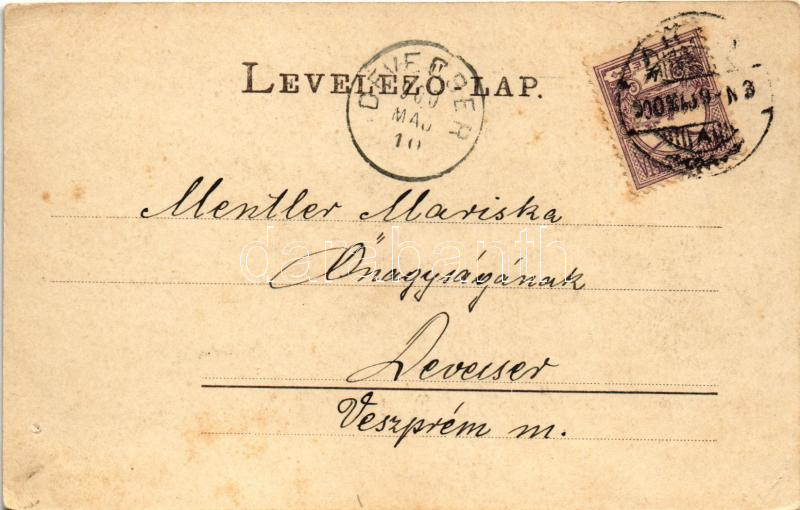 LEVELEZŐ LAP.
DEVECSER
900
MAJ
10
Mentler Mariska
Őnagyságának
Devecser
Veszprém m.
darabanth